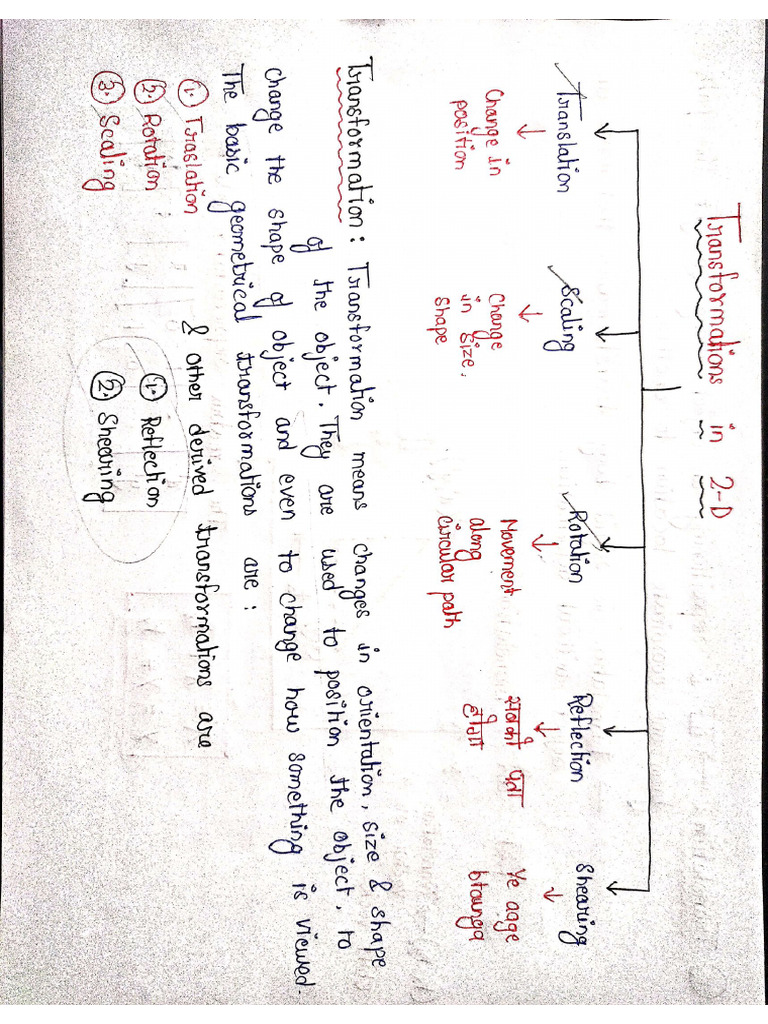 Transformations in 2-D
Translation
Change in
position
Scaling
Change
in size,
shape
Rotation
Movement
along
circular path
Reflection
सबको पता
होगा
Shearing
Ye aage
btaunga
Transformation: Transformation means changes in orientation, size & shape
of the object. They are used to position the object, to
change the shape of object and even to change how something is viewed.
The basic geometrical transformations are:
1. Traslation
2. Rotation
3. Scaling
& other derived transformations are
1. Reflection
2. Shearing